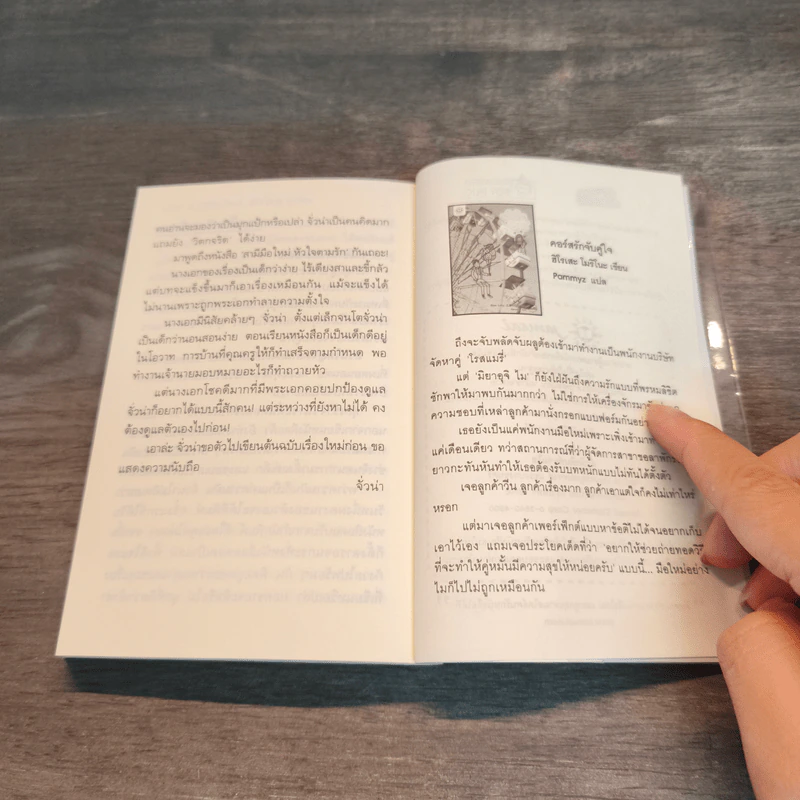 คนอ่านจะมองว่าเป็นมุกแป้กหรือเปล่า จั่วน่าเป็นคนคิดมาก
แถมยัง 'วิตกจริต' ได้ง่าย
มาพูดถึงหนังสือ 'สามีมือใหม่ หัวใจตามรัก' กันเถอะ!
นางเอกของเรื่องเป็นเด็กว่าง่าย ไร้เดียงสาและขี้กลัว
แต่บทจะแข็งขึ้นมาก็เอาเรื่องเหมือนกัน แม้จะแข็งได้
ไม่นานเพราะถูกพระเอกทำลายความตั้งใจ
นางเอกมีนิสัยคล้ายๆ จั่วน่า ตั้งแต่เล็กจนโตจั่วน่า
เป็นเด็กว่านอนสอนง่าย ตอนเรียนหนังสือก็เป็นเด็กดีอยู่
ในโอวาท การบ้านที่คุณครูให้ก็ทำเสร็จตามกำหนด พอ
ทำงานเจ้านายมอบหมายอะไรก็ทำถวายหัว
แต่นางเอกโชคดีมากที่มีพระเอกคอยปกป้องดูแล
จั่วน่าก็อยากได้แบบนี้สักคน! แต่ระหว่างที่ยังหาไม่ได้ คง
ต้องดูแลตัวเองไปก่อน!
เอาล่ะ จั่วน่าขอตัวไปเขียนต้นฉบับเรื่องใหม่ก่อน ขอ
แสดงความนับถือ
จั่วน่า
คอร์สรักจับคู่ใจ
ฮิโรเสะ โมริโนะ เขียน
Pammyz แปล
ถึงจะจับพลัดจับผลูต้องเข้ามาทำงานเป็นพนักงานบริษัท
จัดหาคู่ 'โรสแมรี่'
แต่ 'มิยาอุจิ ไม' ก็ยังใฝ่ฝันถึงความรักแบบที่พรหมลิขิต
ชักพาให้มาพบกันมากกว่า ไม่ใช่การให้เครื่องจักรมา
ความชอบที่เหล่าลูกค้ามานั่งกรอกแบบฟอร์มกันอย่าง
เธอยังเป็นแค่พนักงานมือใหม่เพราะเพิ่งเข้ามา
แค่เดือนเดียว ทว่าสถานการณ์ที่ว่าผู้จัดการสาขาขอลาพัก
ยาวกะทันหันทำให้เธอต้องรับบทหนักแบบไม่ทันได้ตั้งตัว
เจอลูกค้าวีน ลูกค้าเรื่องมาก ลูกค้าเอาแต่ใจก็คงไม่เท่าไหร่
หรอก
แต่มาเจอลูกค้าเพอร์เฟ็กต์แบบหาข้อติไม่ได้จนอยากเก็บ
เอาไว้เอง แถมเจอประโยคเด็ดที่ว่า 'อยากให้ช่วยถ่ายทอดวิธี
ที่จะทำให้คู่หมั้นมีความสุขให้หน่อยครับ' แบบนี้... มือใหม่อย่าง
ไมก็ไปไม่ถูกเหมือนกัน